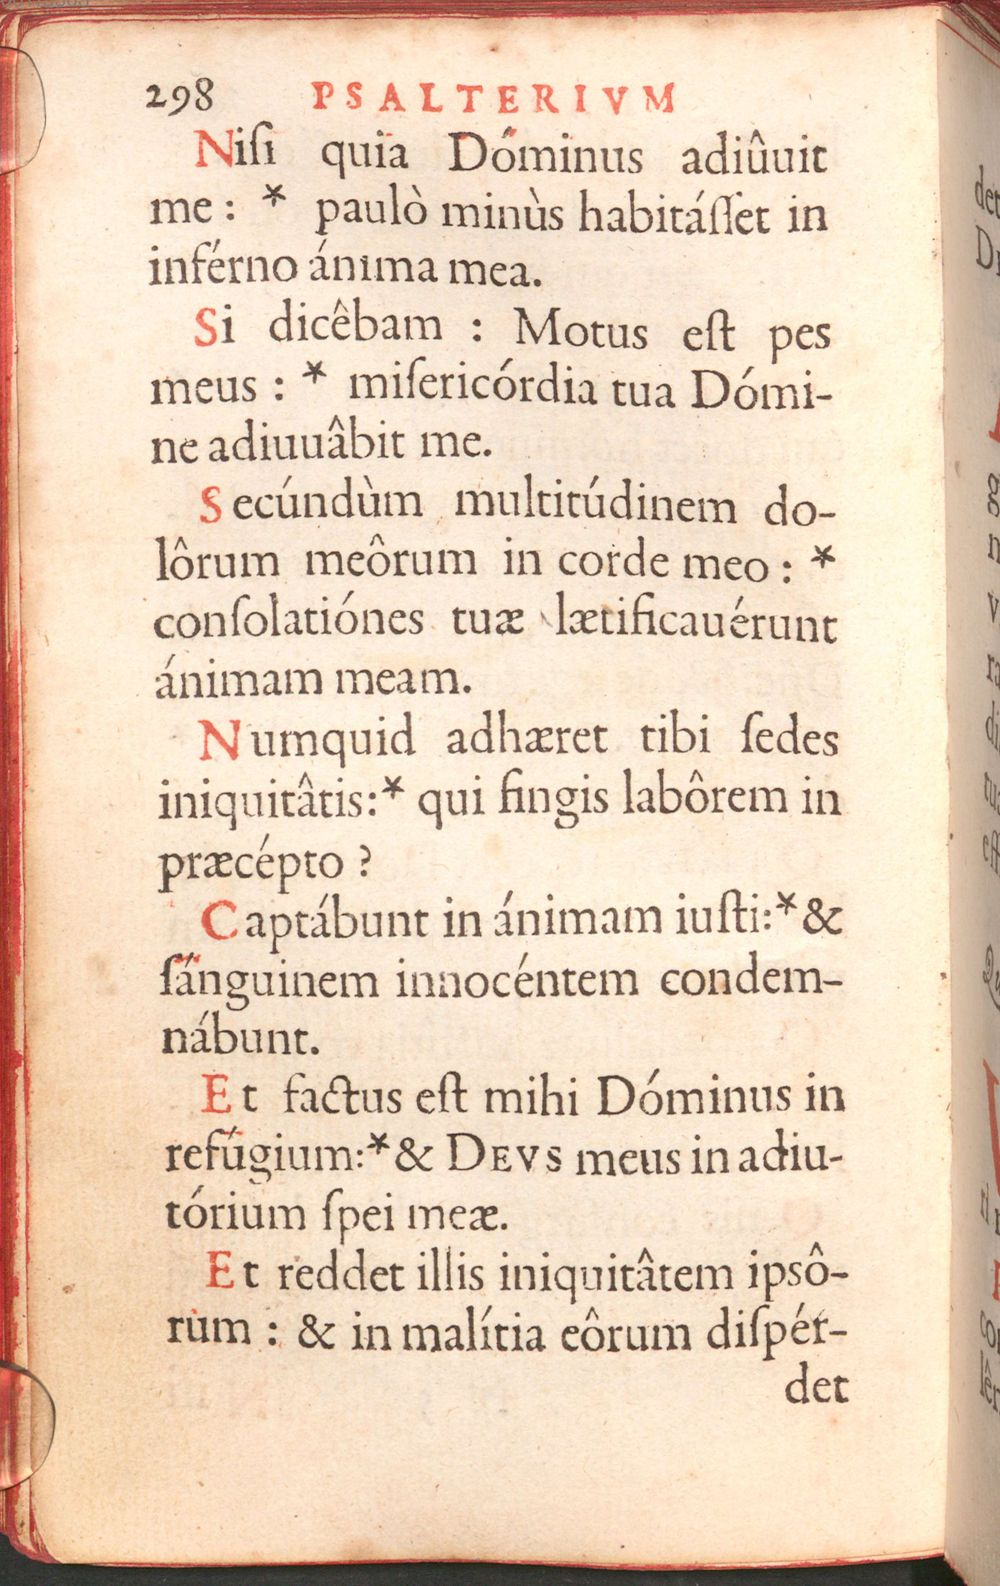 298 PSALTERIVM
Niſi quia Dóminus adiûuit
me : * paulò minùs habitáſſet in
inférno ánima mea.
Si dicêbam : Motus eſt pes
meus : * miſericórdia tua Dómi-
ne adiuuâbit me.
Secúndùm multitúdinem do-
lôrum meôrum in corde meo : *
conſolatiónes tuæ lætificauérunt
ánimam meam.
Numquid adhæret tibi ſedes
iniquitâtis:* qui fingis labôrem in
præcépto ?
Captábunt in ánimam iuſti:*&
ſánguinem innocéntem condem-
nábunt.
Et factus eſt mihi Dóminus in
refúgium:*& DEVS meus in adiu-
tórium ſpei meæ.
Et reddet illis iniquitâtem ipsô-
rum : & in malítia eôrum diſpér-
det